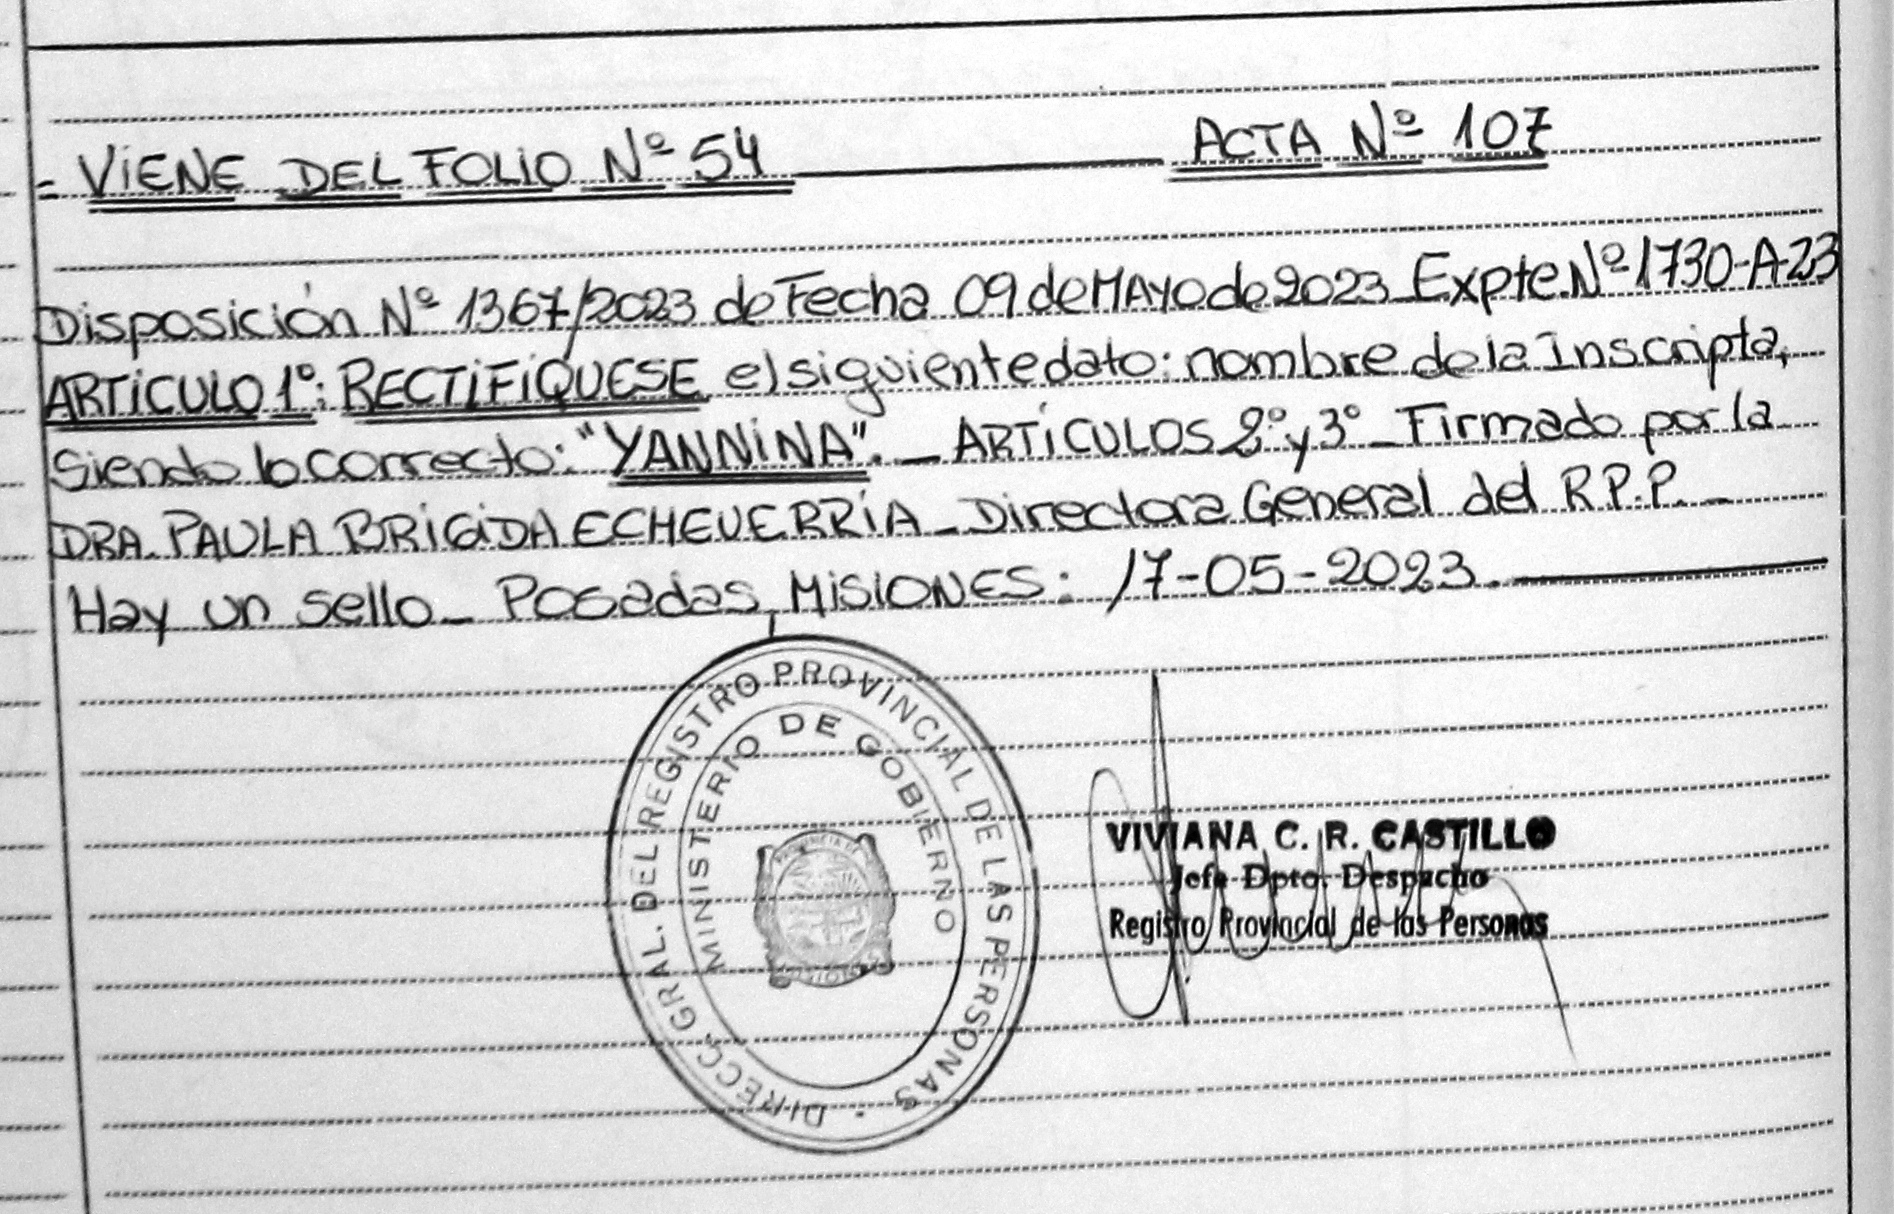 - VIENE DEL FOLIO Nº 54 ACTA Nº 107
Disposición Nº 1367/2023 de Fecha 09 de MAYO de 2023 Expte. Nº 1730-A-23
ARTÍCULO 1º: RECTIFÍQUESE el siguiente dato: nombre de la Inscripta,
Siendo lo correcto: "YANNINA". _ ARTÍCULOS 2º y 3º _ Firmado por la
DRA. PAULA BRIGIDA ECHEVERRÍA _ Directora General del R.P.P. _
Hay un sello _ Posadas, MISIONES: 17-05-2023.
DIRECC. GRAL. DEL REGISTRO PROVINCIAL DE LAS PERSONAS
MINISTERIO DE GOBIERNO
VIVIANA C. R. CASTILLO
Jefa Dpto. Despacho
Registro Provincial de las Personas